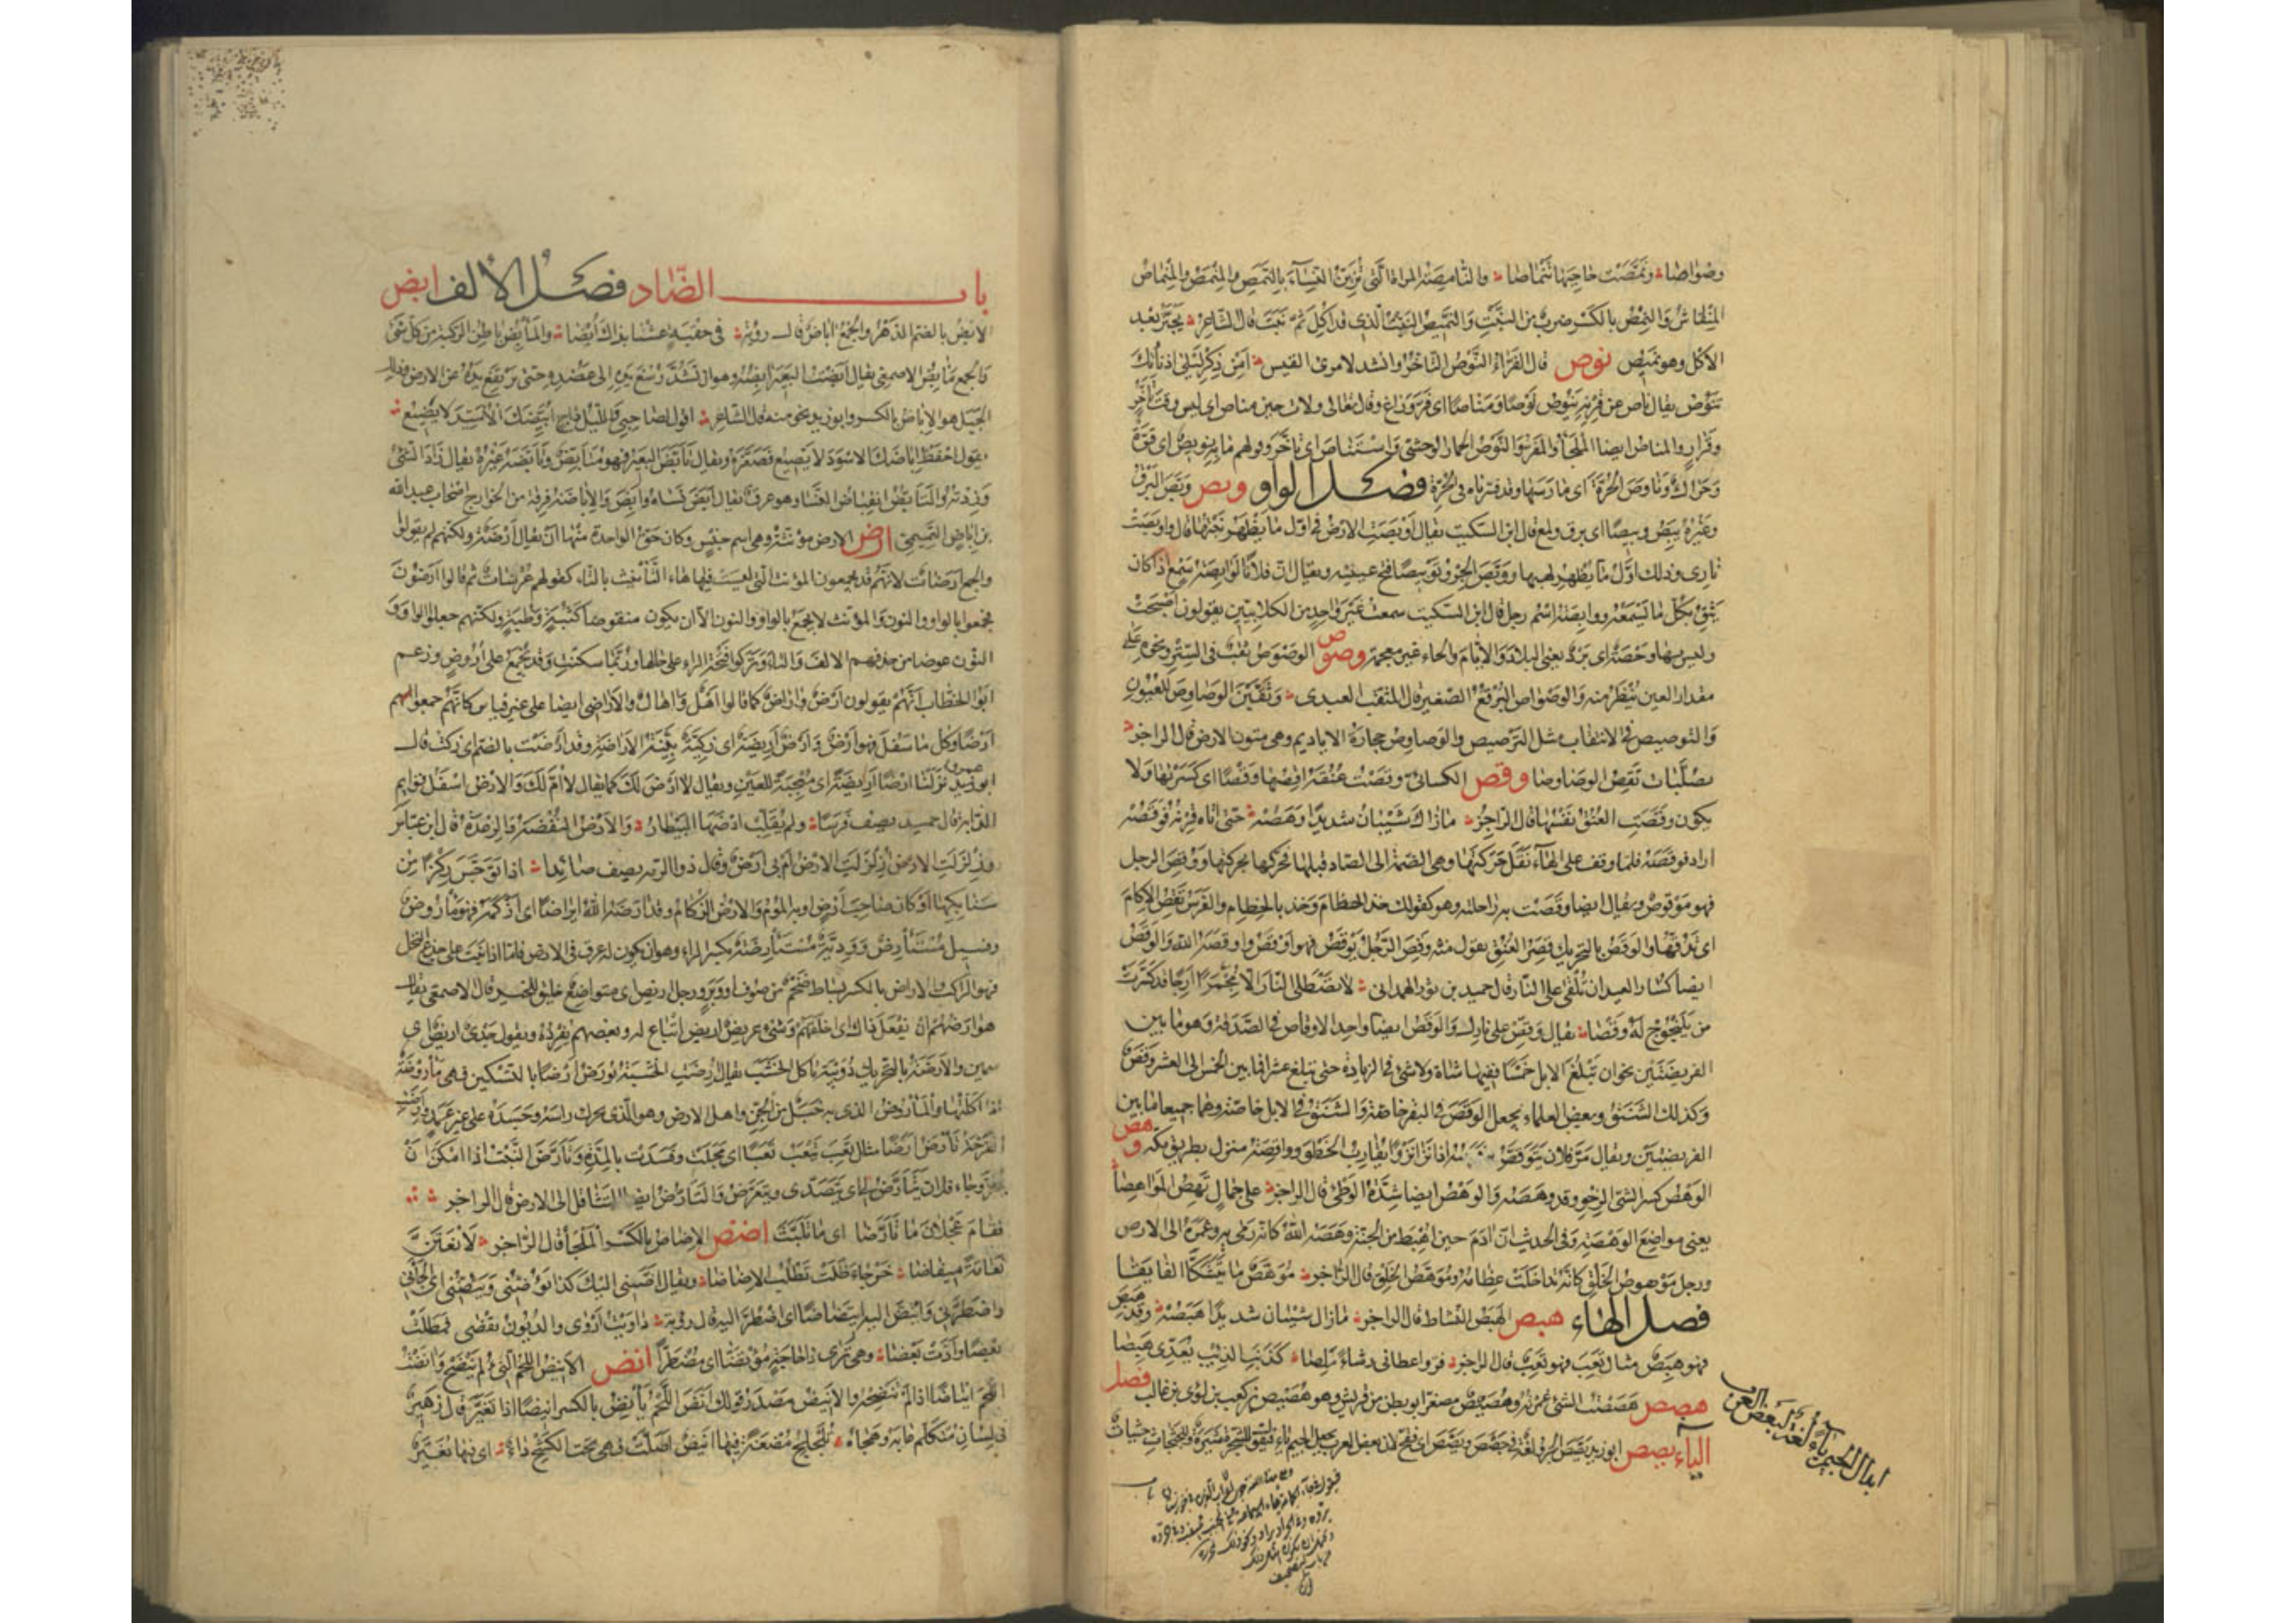 وصواصا ونمصت حاجبها تنماصا والنامصة المرأة التي تزين النساء بالنمص والمنمص والمنماص
المنقاش والنمص بالكسر ضرب من النبت والنميص النبت الذي قد اكل ثم نبت قال الشاعر تجبر بعد
الاكل وهو نميص نوص قال الفراء النوص التاخر وانشد لامرئ القيس امن ذكر ليلى اذ نأتك
تنوص يقال ناص عن قرنه ينوص نوصا ومناصا اي فر وراغ وقال تعالى ولات حين مناص اي ليس وقت تأخر
وفرار والمناص ايضا الملجأ والمفر والنوص الحمار الوحشي واستناص اي تاخر وقولهم ما به نويص اي قوة
وحراك وناوص الجرة اي مارسها وقد فسرناه في الجرة فصل الواو وبص وبص البرق
وغيره يبص وبيصا اي برق ولمع قال ابن السكيت يقال اوبصت الارض في اول ما يظهر نبتها قال واوبصت
ناري وذلك اول ما يظهر لهبها ووبص الجرو توبيصا فتح عينيه ويقال ان فلانا لوابصة سمع اذا كان
يثق بكل ما يسمعه ووابصة اسم رجل قال ابن السكيت سمعت غير واحد من الكلابيين يقولون اصبحت
وليس بها وحصة اي برد يعني البلاد والايام والحاء غير معجمة وصوص الوصوص ثقب في الستر ونحوه على
مقدار العين ينظر منه والوصواص البرقع الصغير قال المثقب العبدي وثقبن الوصاوص للعيون
والتوصيص في الانتقاب مثل الترصيص والوصاوص حجارة الاياديم وهي متون الارض قال الراجز
بصلبات تقص الوصاوصا وقص الكسائي وقصت عنقه اقصها وقصا اي كسرتها ولا
يكون وقصت العنق نفسها قال الراجز ما زال شيبان شديدا وهصه حتى اتاه قرنه فوقصه
اراد فوقصه فلما وقف على الهاء نقل حركتها وهي الضمة الى الصاد قبلها فحركها بحركتها ووقص الرجل
فهو موقوص ويقال ايضا وقصت به راحلته وهو كقولك خذ الخطام وخذ بالخطام والفرس تقص الاكام
اي تدقها والوقص بالتحريك قصر العنق يقول منه وقص الرجل يوقص فهو اوقص واوقصه الله والوقص
ايضا كسار العيدان تلقى على النار قال حميد بن ثور الهمداني لا تصطلي النار الا مجمرا ارجا قد كسرت
من يلنجوج له وقصا يقال وقص على نارك والوقص ايضا واحد الاوقاص في الصدقة وهو ما بين
الفريضتين نحو ان تبلغ الابل خمسا ففيها شاة ولا شئ في الزيادة حتى تبلغ عشرا فما بين الخمس الى العشر وقص
وكذلك الشنق وبعض العلماء يجعل الوقص في البقر خاصة والشنق في الابل خاصة وهما جميعا ما بين
الفريضتين ويقال مر فلان يتوقص به فرسه اذا نزا نزوا يقارب الخطو وواقصة منزل بطريق مكة وهص
الوهص كسر الشئ الرخو وقد وهصه والوهص ايضا شدة الوطئ قال الراجز على جمال تهص المواهصا
يعني مواضع الوهصة وفي الحديث ان ادم حين اهبط من الجنة وهصه الله كانه رمى به وغمزه الى الارض
ورجل موهوص الخلق كانه تداخلت عظامه وموهص الخلق قال الراجز موهص ما يتشكى الفائقا
فصل الهاء هبص الهبص النشاط قال الراجز ما زال شيبان شديدا هبصه وقد هبص
فهو هبص مثال تعب فهو تعب قال الراجز فر واعطاني رشاء ملصا كذنب الذئب يعدي هبصا
هصص هصصت الشئ غمزته وهصيص مصغرا ابو بطن من قريش وهو هصيص بن كعب بن لؤي بن غالب فصل
الياء يصص ابو زيد يصص الجرو لغة في جصص وبصص اي فقح لان بعض العرب يجعل الجيم ياء فيقول للشجرة شيرة وللجثجاث جثياث
ابدال الجيم ياء لغة لبعض العرب
باب الضاد فصل الالف ابض
الابض بالضم الدهر والجمع اباض قال رؤبة في حقبة عشنا بذاك ابضا والمأبض باطن الركبة من كل شئ
والجمع مابض الاصمعي يقال ابضت البعير ابضه وهو ان تشد رسغ يده الى عضده حتى ترتفع يده عن الارض وذلك
الحبل هو الاباض بالكسر وابو زيد نحو منه قال الشاعر اقول لصاحبي والليل داج ابيضك الاسيد لا يضيع
يقول احفظ اباضك الاسود لا يضيع فصغره ويقال تأبض البعير فهو متأبض وتأبضه غيره يقال زاد الشئ
وزدته والتأبض انقباض النسا وهو عرق يقال ابض نساه وابض والاباضية فرقة من الخوارج اصحاب عبد الله
بن اباض التميمي ارض الارض مؤنثة وهي اسم جنس وكان حق الواحدة منها ان يقال ارضة ولكنهم لم يقولوا
والجمع ارضات لانهم قد يجمعون المؤنث التي ليست فيها هاء التأنيث بالتاء كقولهم عرسات ثم قالوا ارضون
فجمعوا بالواو والنون والمؤنث لا يجمع بالواو والنون الا ان يكون منقوصا كثبة وظبة ولكنهم جعلوا الواو و
النون عوضا من حذفهم الالف والتاء وتركوا فتحة الراء على حالها وربما سكنت وقد تجمع على اروض وزعم
ابو الخطاب انهم يقولون ارض واراض كما قالوا اهل واهال والاراضي ايضا على غير قياس كانهم جمعوا
ارضا وكل ما سفل فهو ارض وارض اريضة اي زكية بينة الاراضة وقد ارضت بالضم اي زكت قال
ابو عمرو نزلنا ارضا اريضة اي معجبة للعين ويقال لا ارض لك كما يقال لا ام لك والارض اسفل قوايم
الدابة قال حميد يصف فرسا ولم يقلب ارضها البيطار والارض النفضة والرعدة قال ابن عباس
وقد زلزلت الارض ازلزلت الارض ام بي ارض وقال ذو الرمة يصف صائدا اذا توجس ركزا من
سنابكها او كان صاحب ارض او به الموم والارض الزكام وقد ارضه الله ايراضا اي ازكمه فهو مأروض
وفسيل مستأرض وودية مستأرضة بكسر الراء وهو ان يكون له عرق في الارض فاما اذا نبت على جذع النخل
فهو الراكب والاراض بالكسر بساط ضخم من صوف او وبر ورجل اريض اي متواضع خليق للخير قال الاصمعي يقال
هو ارضهم ان يفعل ذاك اي اخلقهم وشئ عريض اريض اتباع له وبعضهم يفرده ويقول جدي اريض اي
سمين والارضة بالتحريك دويبة تاكل الخشب يقال ارضت الخشبة تورض ارضا بالتسكين فهي مأروضة
اذا اكلتها والمأروض الذي به خبل من الجن واهل الارض وهو الذي يحرك راسه وجسده على غير عمد وارضت
القرحة تأرض ارضا مثال تعب يتعب تعبا اي مجلت وفسدت بالمدة وتأرض النبت اذا امكن ان
يجز وجاء فلان يتأرض اي يتصدى ويتعرض والتأرض ايضا التثاقل الى الارض قال الراجز
فقام عجلان وما تأرضا اي ما تلبث اضض الاضاض بالكسر الملجأ قال الراجز لانعتن
نعامة ميفاضا خرجاء ظلت تطلب الاضاضا ويقال اضتني اليك كذا تؤضني وتئضني اي الجأتني
واضطرني وائتض اليه ايتضاضا اي اضطر اليه قال رؤبة داويت اروى والديون تقضى فمطلت
بعضا وادت بعضا وهي ترى ذا حاجة مؤتضا اي مضطرا انض الانيض اللحم الذي لم ينضج وانضت
اللحم ايناضا اذا لم تنضجه والانيض مصدر قولك انض اللحم يأنض بالكسر انيضا اذا تغير قال زهير
في لسان متكلم عابه وهجاه تلجلج مضغة فيها انيض اصلت فهي تحت الكشح داء اي فيها تغير